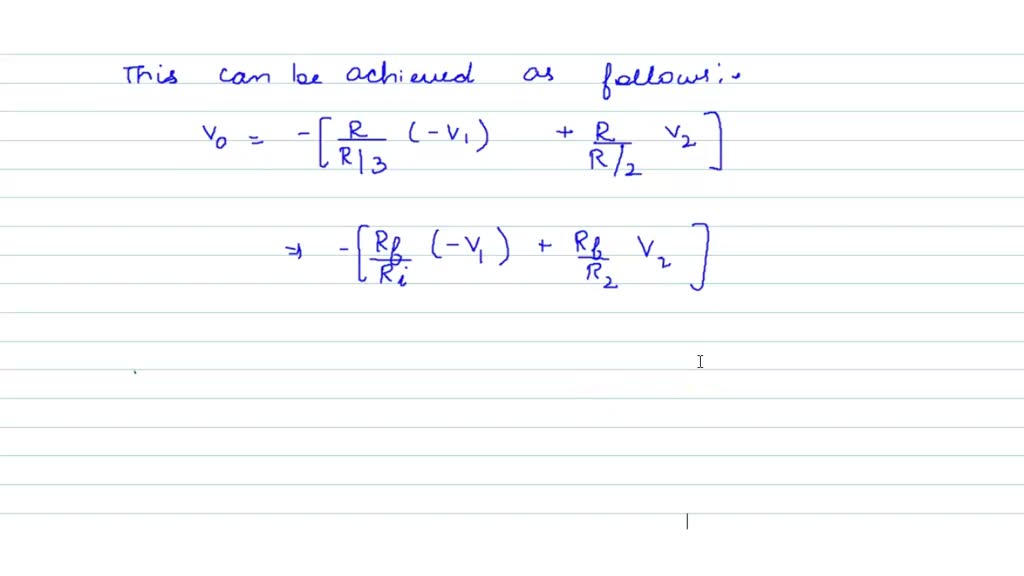 This can be achieved as follows:-
V₀ = -[R/(R/3) (-V₁) + R/(R/2) V₂]
⇒ -[Rf/Ri (-V₁) + Rf/R₂ V₂]